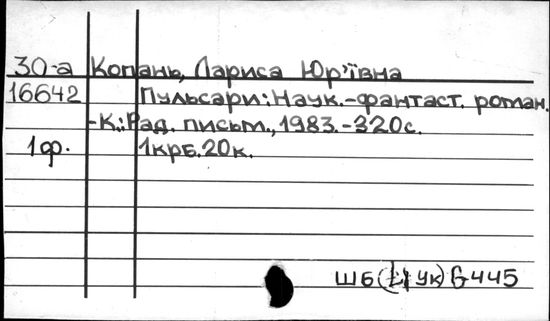 30-а Копань, Лариса Юр'ївна
16642 Пульсари: Наук.-фантаст. роман.
-К.: Рад. письм., 1983.-320с.
1ф. 1крб.20к.
ШБ( Ук) 6445